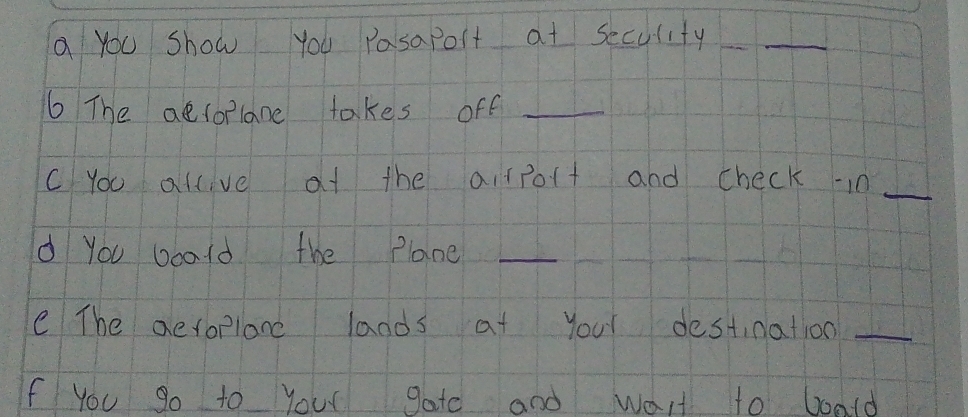 a You show you Pasaport at security ___
b The aeroplane takes off ___
c You arrive at the airport and check-in ___
d You board the plane ___
e The aeroplane lands at your destination ___
f You go to your gate and wait to board